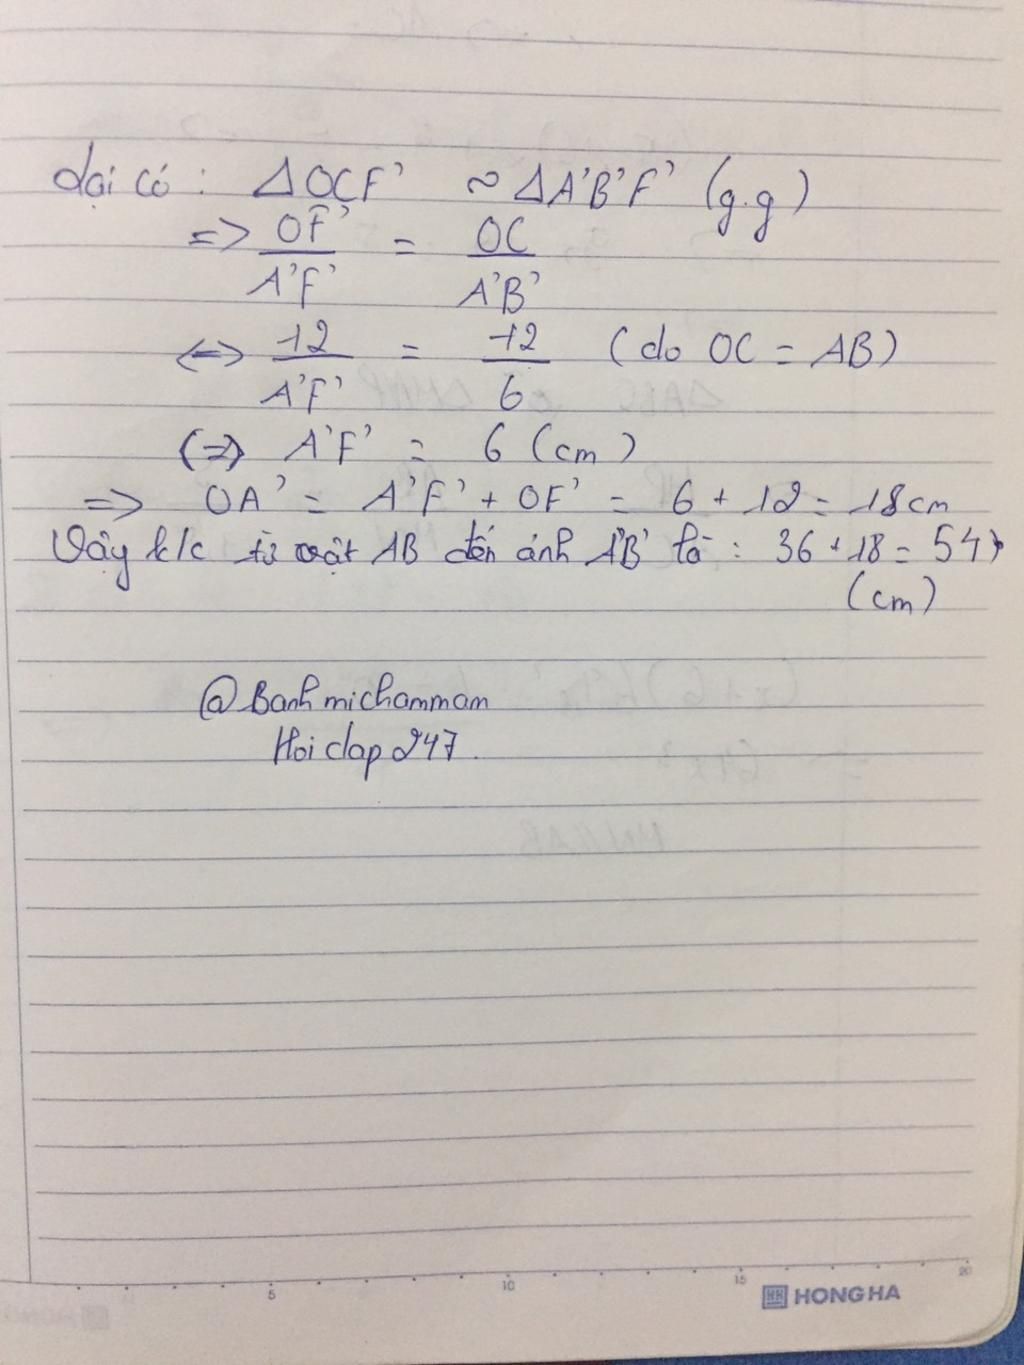 Lại có : ΔOCF' ~ ΔA'B'F' (g.g)
=> OF'/A'F' = OC/A'B'
<=> 12/A'F' = 12/6 (do OC = AB)
(=>) A'F' = 6 (cm)
=> OA' = A'F' + OF' = 6 + 12 = 18cm
Vậy k/c từ vật AB đến ảnh A'B' là : 36 + 18 = 54
(cm)
@Banhmichammam
Hoidap247.
5 10 15 20
HONG HA